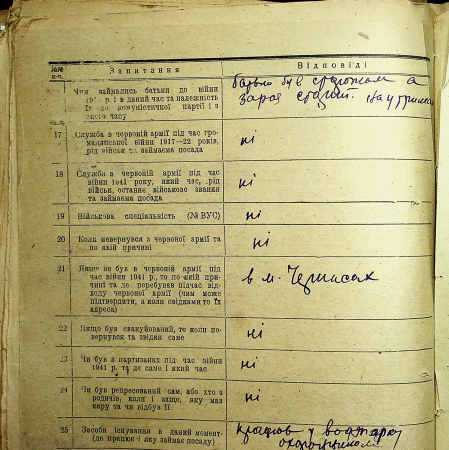 №№ п-п.
Запитання
Відповіді
Чим займались батьки до війни
р. і в даний час та належність
до комуністичної партії і з
часу
батько був сторожом а
зараз старий.
17 Служба в червоній армії під час гро-
мадянської війни 1917—22 років,
рід військ та займаєма посада
ні
18 Служба в червоній армії під час
війни 1941 року, який час, рід
військ, останнє військове звання
та займаєма посада
ні
19 Військова спеціальність (№ ВУС)
ні
20 Коли невернувся з червоної армії та
по якій причині
ні
21 Якще не був в червоній армії під
час війни 1941 р., то по якій при-
чині та де перебував підчас від-
ходу червоної армії (чим може
підтвердити, а коли свідками то їх
адреса)
в м. Черкасах
22 Якщо був евакуйований, то коли по-
вернувся та звідки саме
ні
23 Чи був в партизанах під час війни
1941 р. та де саме і який час
ні
24 Чи був репресований сам, або хто з
родичів, коли і защо, яку мав
кару та чи відбув її
ні
25 Засоби існування в даний момент-
(де працює і яку займає посаду)
Працюю у
охоронником